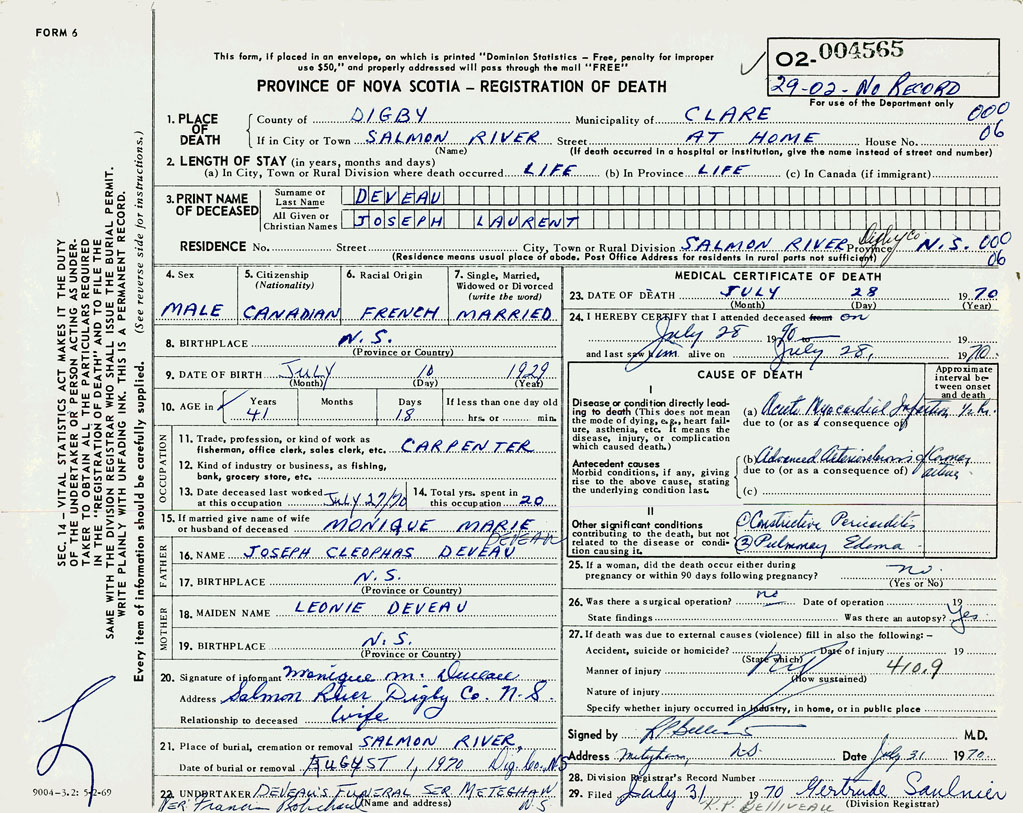 FORM 6
This form, if placed in an envelope, on which is printed "Dominion Statistics – Free, penalty for improper
use $50," and properly addressed will pass through the mail "FREE"
02-004565
29-02-No RECORD
For use of the Department only
PROVINCE OF NOVA SCOTIA – REGISTRATION OF DEATH
1. PLACE OF DEATH
County of DIGBY Municipality of CLARE 000
If in City or Town SALMON RIVER Street AT HOME House No. 06
(Name) (If death occurred in a hospital or institution, give the name instead of street and number)
2. LENGTH OF STAY (in years, months and days)
(a) In City, Town or Rural Division where death occurred LIFE (b) In Province LIFE (c) In Canada (if immigrant)
3. PRINT NAME OF DECEASED
Surname or Last Name DEVEAU
All Given or Christian Names JOSEPH LAURENT
RESIDENCE No. Street City, Town or Rural Division SALMON RIVER Digby Co Province N.S. 000
(Residence means usual place of abode. Post Office Address for residents in rural parts not sufficient) 06
4. Sex
MALE
5. Citizenship
(Nationality)
CANADIAN
6. Racial Origin
FRENCH
7. Single, Married,
Widowed or Divorced
(write the word)
MARRIED
8. BIRTHPLACE N.S.
(Province or Country)
9. DATE OF BIRTH JULY 10 1929
(Month) (Day) (Year)
10. AGE in Years Months Days If less than one day old
41 18 hrs. or min.
OCCUPATION
11. Trade, profession, or kind of work as
fisherman, office clerk, sales clerk, etc. CARPENTER
12. Kind of industry or business, as fishing,
bank, grocery store, etc.
13. Date deceased last worked
at this occupation JULY 27/70
14. Total yrs. spent in
this occupation 20
15. If married give name of wife
or husband of deceased MONIQUE MARIE
DEVEAU
FATHER
16. NAME JOSEPH CLEOPHAS DEVEAU
17. BIRTHPLACE N.S.
(Province or Country)
MOTHER
18. MAIDEN NAME LEONIE DEVEAU
19. BIRTHPLACE N.S.
(Province or Country)
20. Signature of informant Monique M. Deveau
Address Salmon River Digby Co. N.S.
Relationship to deceased Wife
21. Place of burial, cremation or removal SALMON RIVER,
Date of burial or removal AUGUST 1, 1970 Dig. Co. N.S
22. UNDERTAKER DEVEAU'S FUNERAL SER. METEGHAN
PER. Francis Robichaud (Name and address) N.S.
MEDICAL CERTIFICATE OF DEATH
23. DATE OF DEATH JULY 28 1970
(Month) (Day) (Year)
24. I HEREBY CERTIFY that I attended deceased from on
July 28 1970 to
and last saw him alive on July 28, 1970
CAUSE OF DEATH
Approximate
interval be-
tween onset
and death
I
Disease or condition directly lead-
ing to death (This does not mean
the mode of dying, e.g., heart fail-
ure, asthenia, etc. It means the
disease, injury, or complication
which caused death.)
(a) Acute Myocardial Infarction
due to (or as a consequence of)
Antecedent causes
Morbid conditions, if any, giving
rise to the above cause, stating
the underlying condition last.
(b) Advanced Arteriosclerosis of Coronary
due to (or as a consequence of)
(c)
II
Other significant conditions
contributing to the death, but not
related to the disease or condi-
tion causing it.
① Constrictive Pericarditis
② Pulmonary Edema
25. If a woman, did the death occur either during
pregnancy or within 90 days following pregnancy? no.
(Yes or No)
26. Was there a surgical operation? no Date of operation 19
State findings Was there an autopsy? Yes
27. If death was due to external causes (violence) fill in also the following: –
Accident, suicide or homicide? Date of injury 19
(State which)
Manner of injury 410.9
(How sustained)
Nature of injury
Specify whether injury occurred in industry, in home, or in public place
Signed by R P Belliveau M.D.
Address Meteghan, N.S. Date July 31 1970.
28. Division Registrar's Record Number
29. Filed July 31 1970 Gertrude Saulnier
R.P. BELLIVEAU (Division Registrar)
SEC. 14 – VITAL STATISTICS ACT MAKES IT THE DUTY
OF THE UNDERTAKER OR PERSON ACTING AS UNDER-
TAKER TO OBTAIN ALL THE PARTICULARS REQUIRED
IN THE "REGISTRATION OF DEATH" AND TO FILE THE
SAME WITH THE DIVISION REGISTRAR WHO SHALL ISSUE THE BURIAL PERMIT.
WRITE PLAINLY WITH UNFADING INK. THIS IS A PERMANENT RECORD.
Every item of information should be carefully supplied. (See reverse side for instructions.)
9004-3.2: 5-2-69